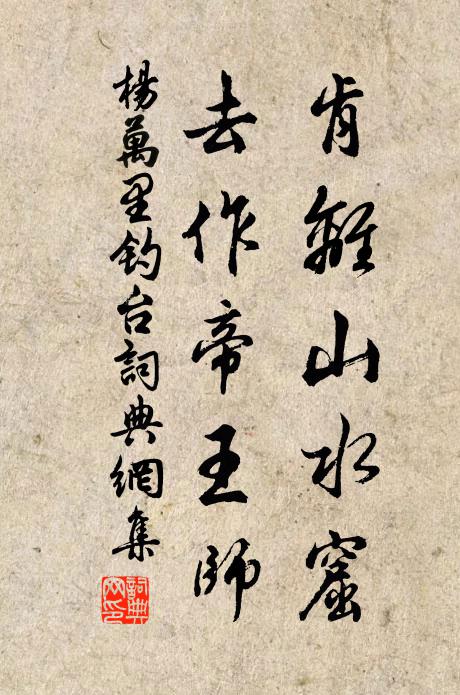 肯離山水窟
去作帝王師
楊萬里釣台詞典網集
詞典网印